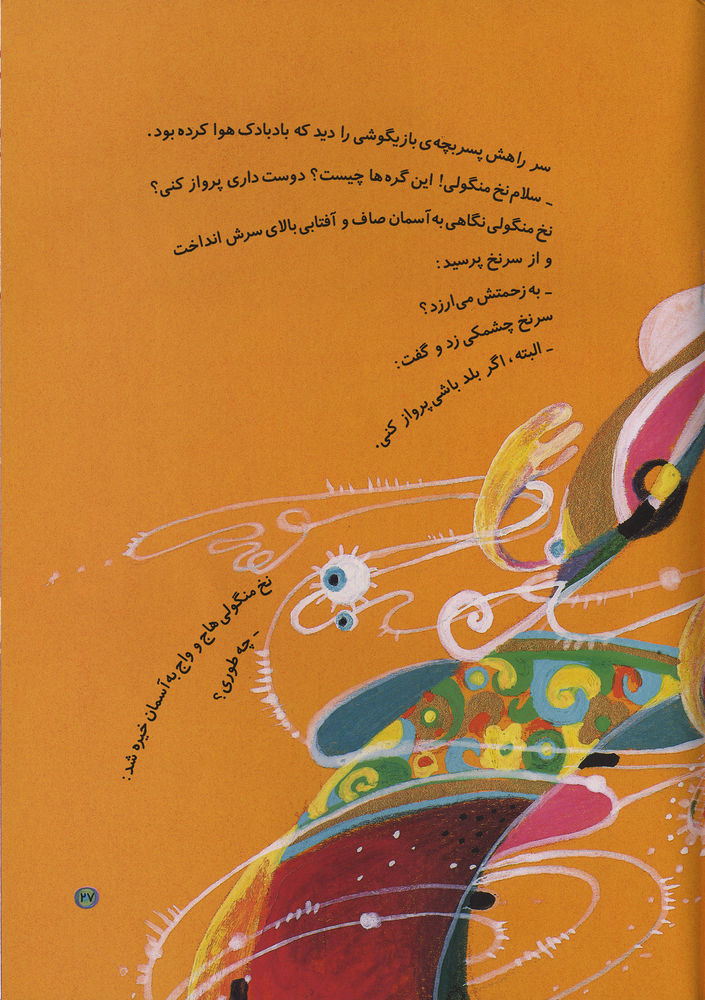 سر راهش پسربچه‌ی بازیگوشی را دید که بادبادک هوا کرده بود.
ـ سلام نخ منگولی! این گره‌ها چیست؟ دوست داری پرواز کنی؟
نخ منگولی نگاهی به آسمان صاف و آفتابی بالای سرش انداخت
و از سرنخ پرسید:
ـ به زحمتش می‌ارزد؟
سرنخ چشمکی زد و گفت:
ـ البته، اگر بلد باشی پرواز کنی.
نخ منگولی هاج و واج به آسمان خیره شد:
ـ چه طوری؟
۲۷